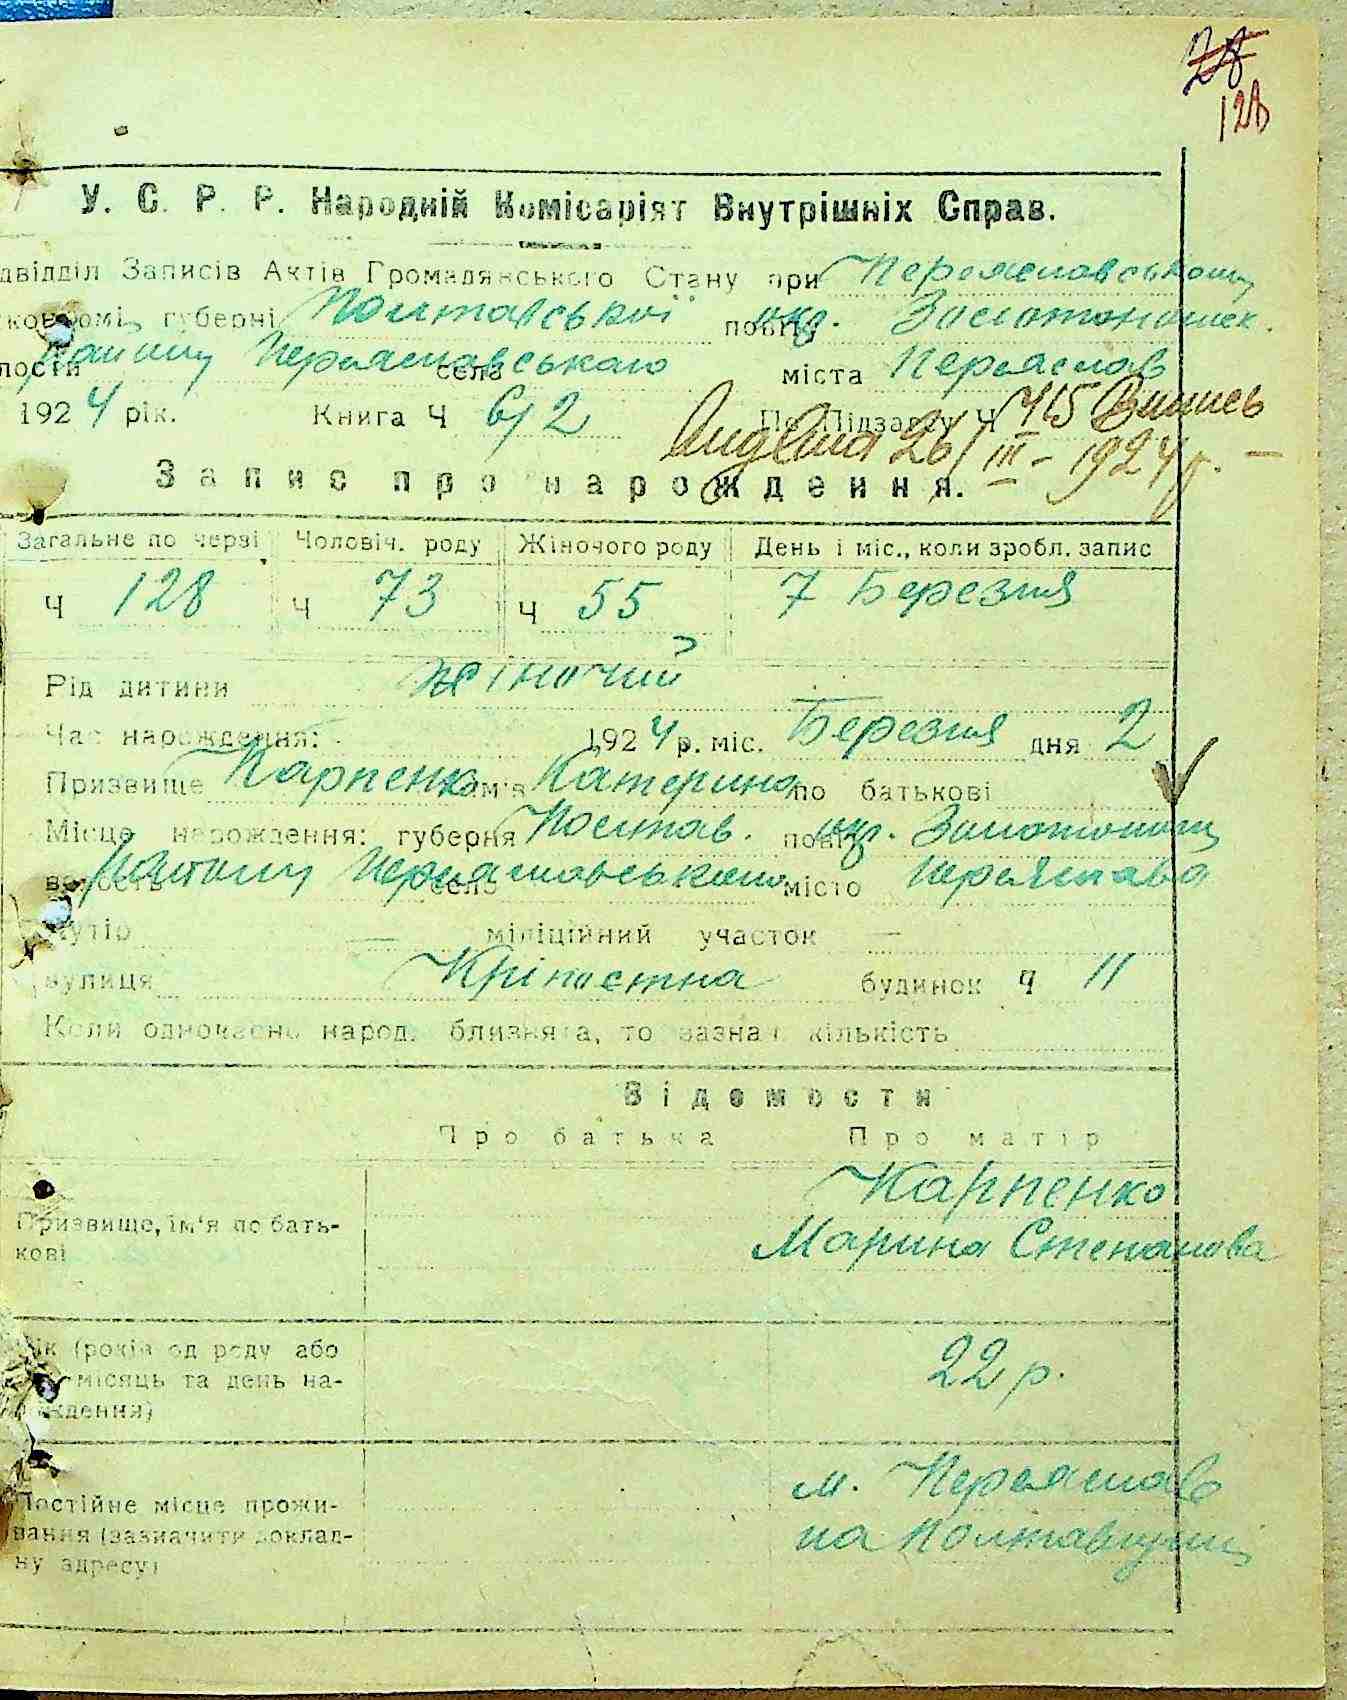 28
128
У. С. Р. Р. Народній Комісаріят Внутрішніх Справ.
двідділ Записів Актів Громадянського Стану при Переяславському
губерні Полтавської повіту окр. Золотоношск.
лости Району Переяславського села міста Переяслав
1924 рік. Книга Ч 6/2 По Підзагсу Ч 415 Випись
26/III - 1924 р. —
Запис про народження.
Загальне по черзі Чоловіч. роду Жіночого роду День і міс., коли зробл. запис
Ч 128 Ч 73 Ч 55 7 Березня
Рід дитини жіночий
Час народження: 1924 р. міс. Березня дня 2
Призвище Карпенко ім'я Катерина по батькові
Місце народження: губерня Полтав. повіт окр. Золотоноши
волость Району Переяславського село місто Переяслава
хутір — міліційний участок —
вулиця Кріпостна будинок Ч 11
Коли одночасно народ. близнята, то зазнач кількість
Відомости
Про батька Про матір
Карпенко
Призвище, ім'я по бать- Марина Степанова
кові
Вік (років од роду або 22 р.
місяць та день на-
рождення)
м. Переяслав
Постійне місце прожи- на Полтавщині
вання (зазначити доклад-
ну адресу)